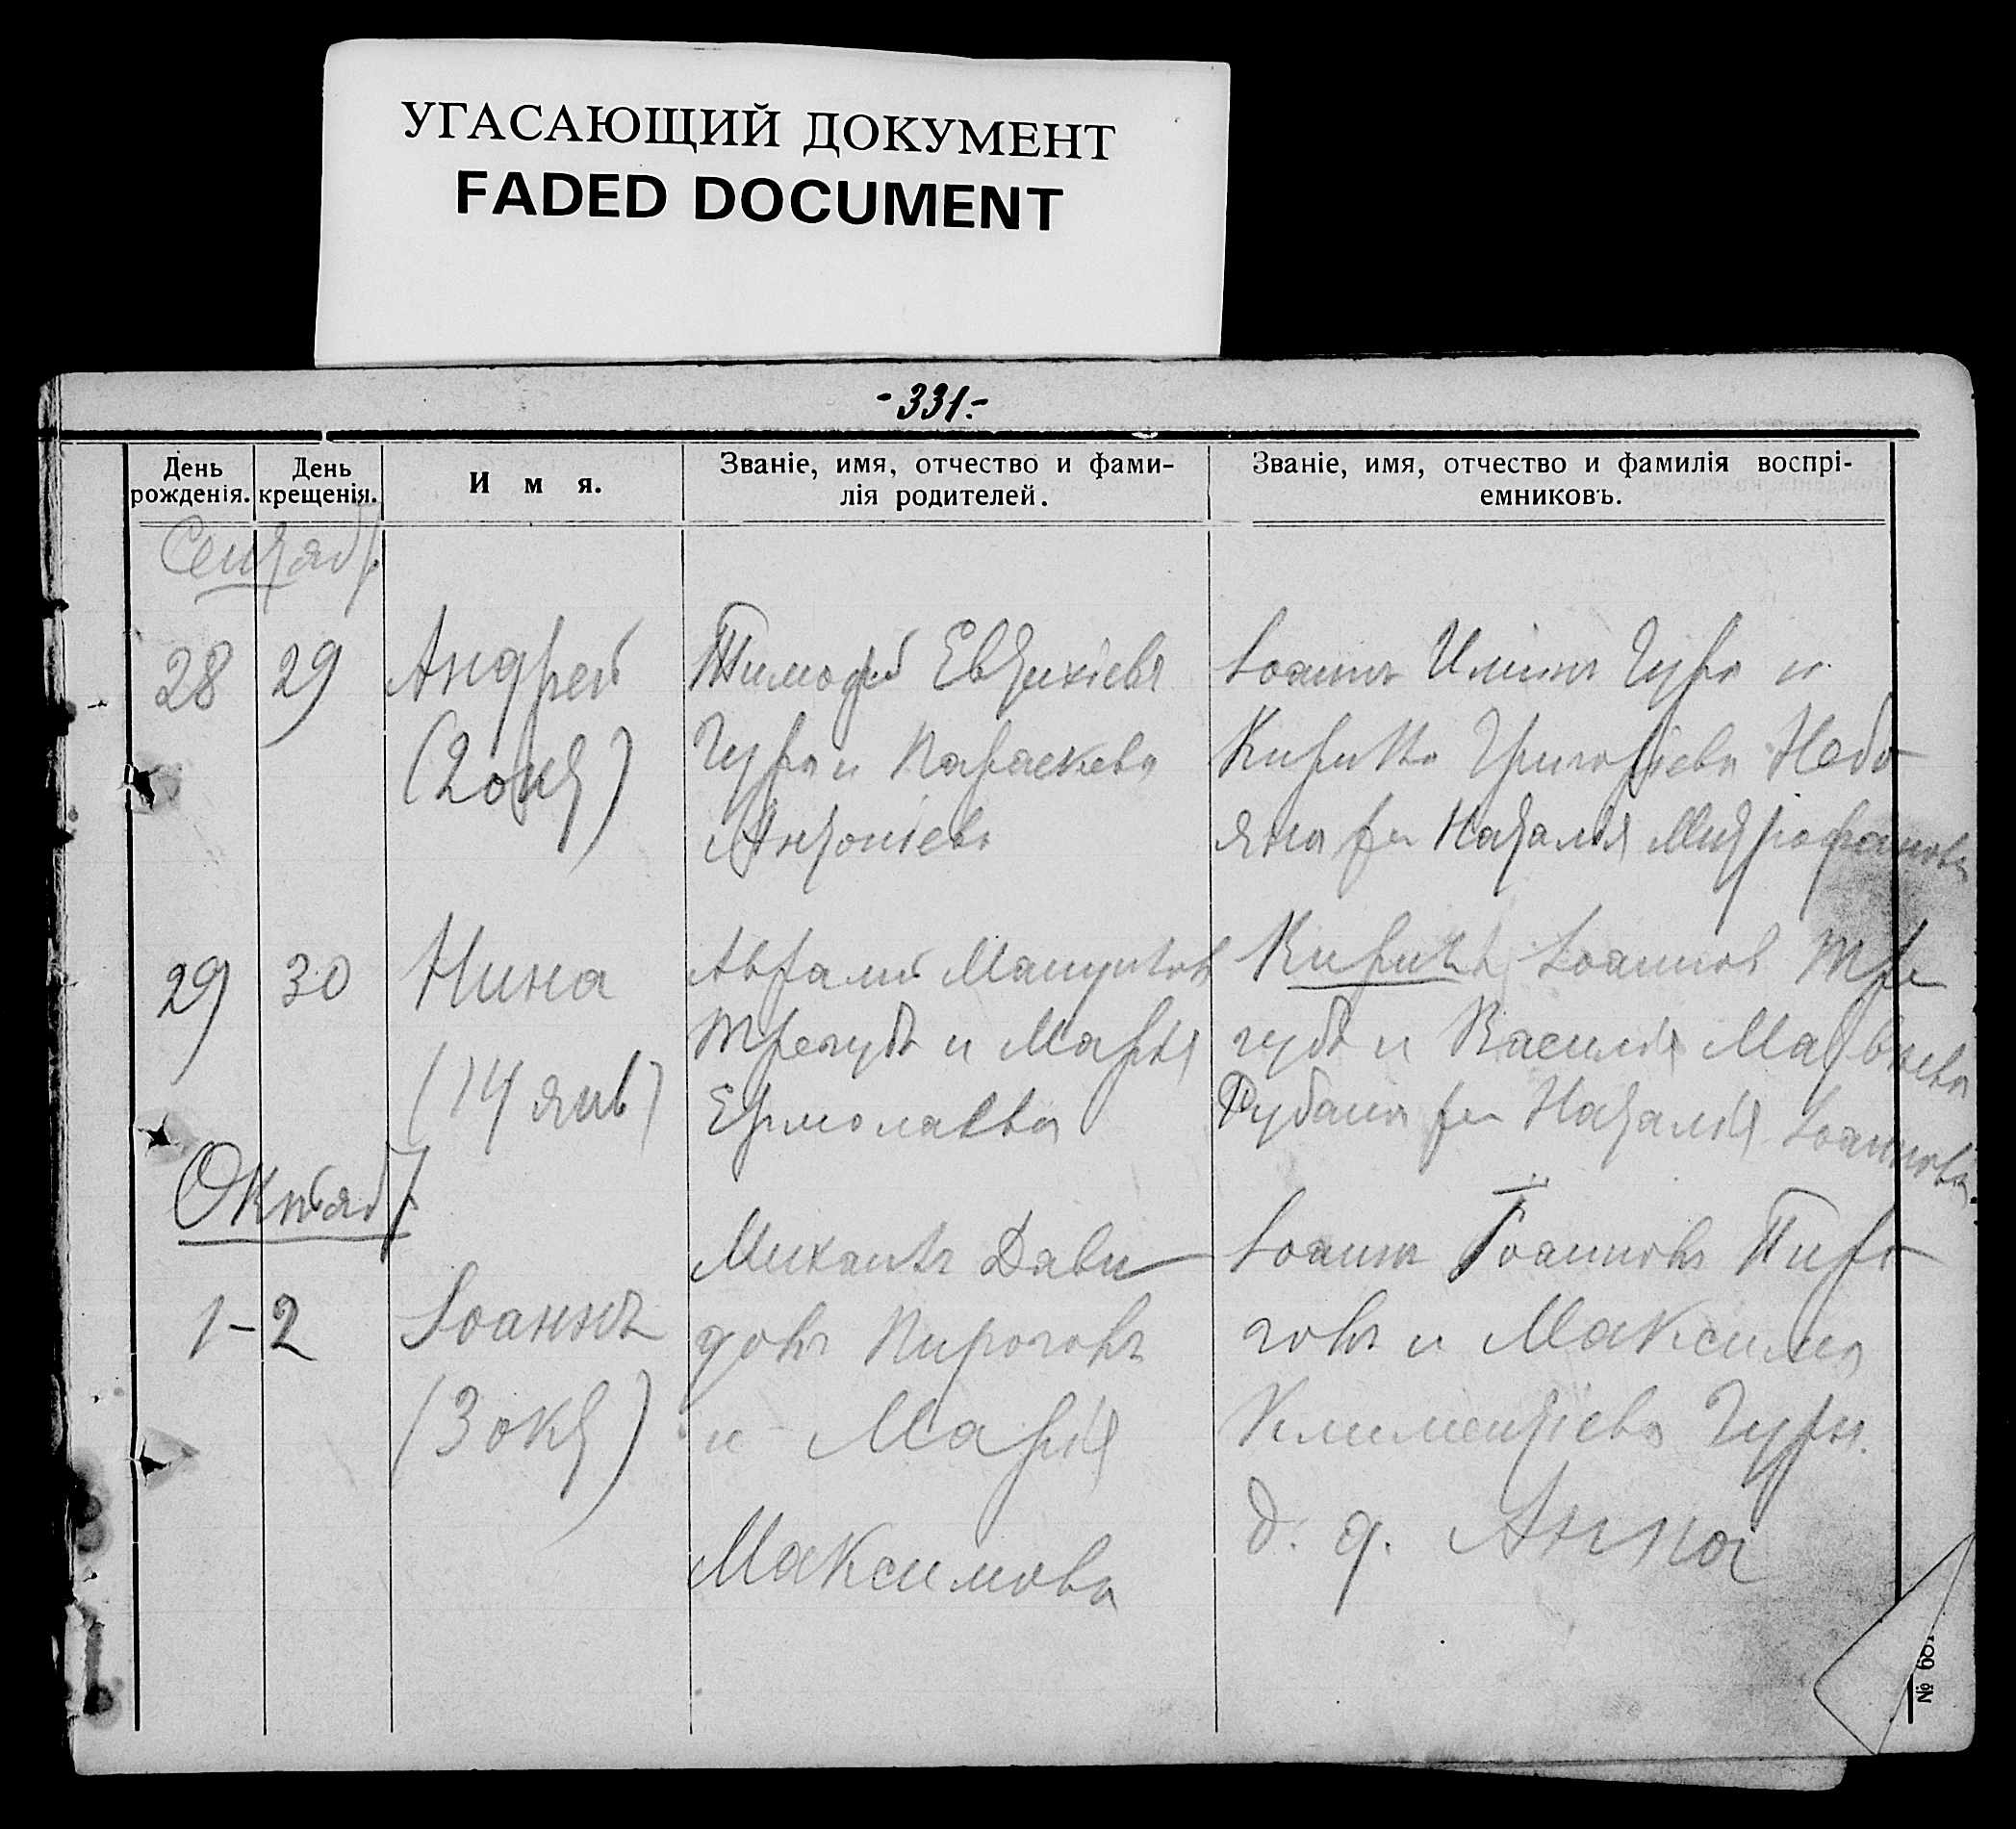 УГАСАЮЩИЙ ДОКУМЕНТ
FADED DOCUMENT
-331.-
День рожденія.
День крещенія.
Имя.
Званіе, имя, отчество и фами-
лія родителей.
Званіе, имя, отчество и фамилія воспрі-
емниковъ.
Сентяб.
28 29 Андрей
(2 окт)
Тимофей Евтихіевъ
Гура и Параскева
Антоніева
Іоаннъ Илiинъ Гура и
Григоріева
Наталія Митрофанова
29 30 Нина
(14 янв)
Мануилов
Трегубъ и Марія
Ермолаева
Іоаннов Тре
губъ и
Наталія Іоаннова
Октяб
1-2 Іоаннъ
(3 окт)
Михаилъ Дави
довъ Пироговъ
и Марія
Максимова
Іоаннъ Іоанновъ Пиро
говъ и Максима
Климентіева Гуры.
д. д. Анна
№ 681